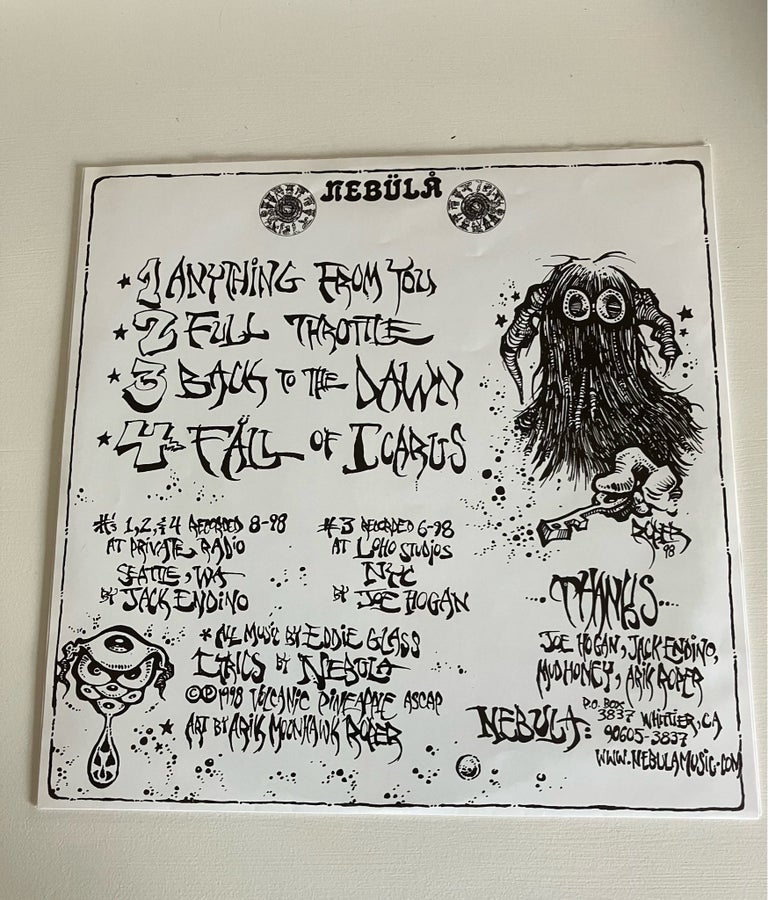 NEBÜLÅ
★ 1 ANYTHING FROM YOU
★ 2 FULL THROTTLE
★ 3 BACK TO THE DAWN
★ 4 FALL OF ICARUS
#'s 1, 2, & 4 RECORDED 8-98
AT PRIVATE RADIO
SEATTLE, WA
BY JACK ENDINO
#3 RECORDED 6-98
AT LOHO STUDIOS
NYC
BY JOE HOGAN
ROPER
98
* ALL MUSIC BY EDDIE GLASS
LYRICS BY NEBULA
©℗ 1998 VOLCANIC PINEAPPLE ASCAP
★ ART BY ARIK MOONHAWK ROPER
THANKS
JOE HOGAN, JACK ENDINO,
MUDHONEY, ARIK ROPER
NEBULA: P.O. BOX
3837 WHITTIER, CA
90605-3837
WWW.NEBULAMUSIC.COM